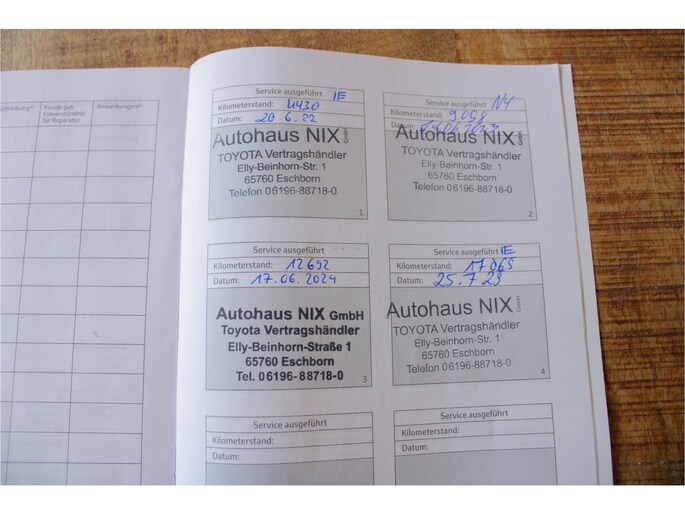 schreibung*¹
Kunde gab
Einverständnis
für Reparatur
Anmerkungen*²
Service ausgeführt IE
Kilometerstand: 4430
Datum: 20.6.22
Autohaus NIX GmbH
TOYOTA Vertragshändler
Elly-Beinhorn-Str. 1
65760 Eschborn
Telefon 06196-88718-0
1
Service ausgeführt
Kilometerstand: 9058
Datum:
Autohaus NIX GmbH
TOYOTA Vertragshändler
Elly-Beinhorn-Str. 1
65760 Eschborn
Telefon 06196-88718-0
2
Service ausgeführt
Kilometerstand: 12692
Datum: 17.06.2024
Autohaus NIX GmbH
Toyota Vertragshändler
Elly-Beinhorn-Straße 1
65760 Eschborn
Tel. 06196-88718-0
3
Service ausgeführt IE
Kilometerstand: 17065
Datum: 25.7.23
Autohaus NIX GmbH
TOYOTA Vertragshändler
Elly-Beinhorn-Str. 1
65760 Eschborn
Telefon 06196-88718-0
4
Service ausgeführt
Kilometerstand:
Datum:
Service ausgeführt
Kilometerstand:
Datum: